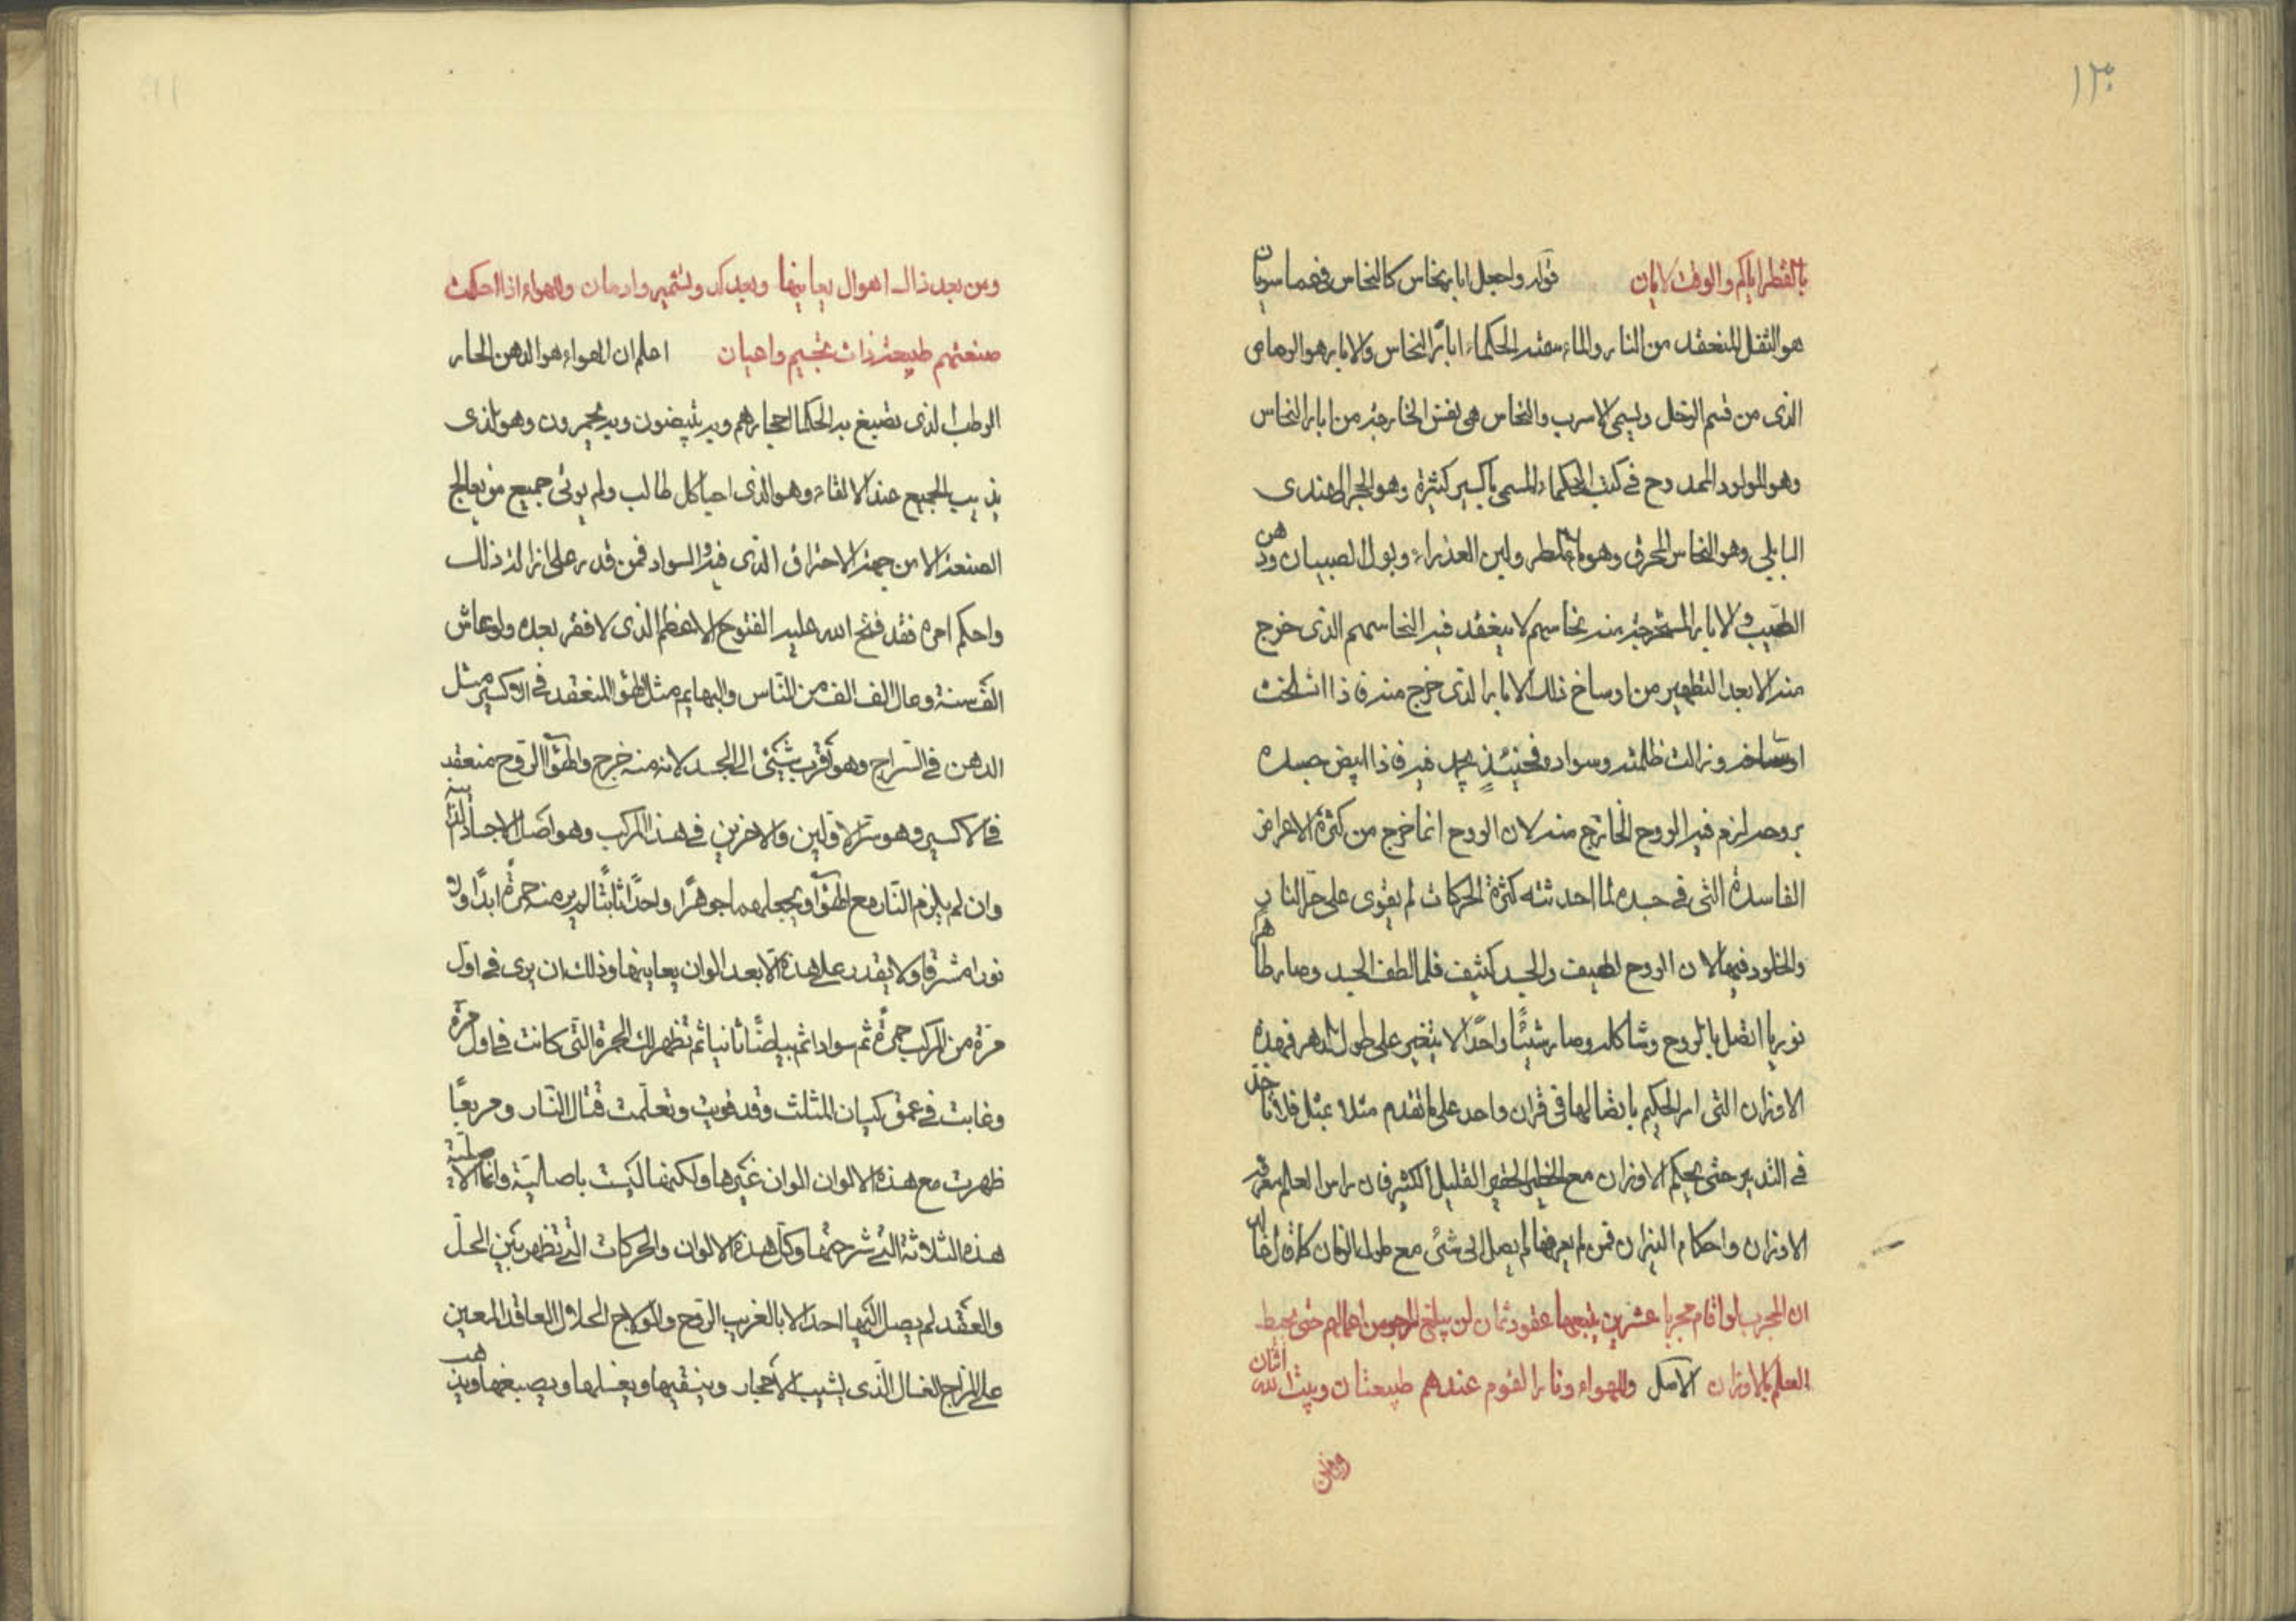 ١٣٠
بالقطر اياكم والوقت لايان قوله واجعل ابار نحاس كالنحاس فهما سريان
هو الثقل المنعقد من النار والماء سمته الحكماء ابار النحاس والابار هو الرصاص
الذى من قسم الزحل ويسمى الاسرب والنحاس هى نفس الخارجة من ابار النحاس
وهو المولود الممدوح فى كتب الحكماء المسمى باكسير كثيرة وهو الحجر الهندى
البابلى وهو النحاس المحرق وهو ماء المطر ولبن العذراء وبول الصبيان ودهن
الطيب والابار المستخرجة منه نحاسهم لا ينعقد فيه النحاسهم الذى خرج
منه الا بعد التطهير من اوساخ ذلك الابار الذى خرج منه فاذا انسلخت
اوساخه وزالت ظلمته وسواده فحينئذ يجمد فيه فاذا ابيض جسده
بروحه لزم فيه الروح الخارج منه لان الروح انما خرج من كثرة الاعراض
الفاسدة التى فى جسده لما احدثته كثرة الحركات لم يقوى على حر النار
والخلود فيها لان الروح لطيف والجسد كثيف فلما لطف الجسد وصار طاهرا
نوريا اتصل بالروح وشاكله وصار شيئًا واحدًا لا يتغير على طول الدهر فهذه
الاوزان التى امر الحكيم باتصالها فى قران واحد على ما تقدم مثلا بمثل فلا تاخذ
فى التدبير حتى يحكم الاوزان مع الخطير الحقير القليل الكثير فان راس العلم معرفة
الاوزان واحكام النيران فمن لم يعرفها لم يصل الى شئ مع طول الزمان كما قال خالد
ان المجرب لو اقام مجربا عشرين يتبعها عقود ثمان لن يبلغ المرجو من اعمالهم حتى يحيط
العلم بالاوزان الاصل والهواء ونار القوم عندهم طبيعتان وبيتا لله اثنان
ومن
ومن بعد ذاك اهوال يعاينها وبعد كد وتشمير وادمان والهواء اذا احكمت
صنعتهم طبيعة ذات تجسيم واعيان اعلم ان الهواء هو الدهن الحار
الرطب الذى تصبغ به الحكما احجارهم وبه يبيضون وبه يحمرون وهو الذى
يذيب الجميع عند الالقاء وهو الذى احيا كل طالب ولم يوتى جميع من يعالج
الصنعة الا من جهة الاحتراق الذى فيه والسواد فمن قدر على ازالة ذلك
واحكم امره فقد فتح الله عليه الفتوح الاعظم الذى لا فقر بعده ولو عاش
الف سنة وعال الف الف من الناس والبهايم مثل الهوا المنعقد فى الاكسير مثل
الدهن فى السراج وهو اقرب شيئى الى الجسد لانه منه خرج والهوا الروح منعقد
فى الاكسير وهو ستر الاولين والاخرين فى هذا المركب وهو اصل الاجساد الذايبة
وان لم يلزم النار مع الهوا ويجعلهما جوهرًا واحدًا ثابتًا لم ير منه حمرة ابدًا ولا
نورا مشرقا ولا يقدر على هذه الا بعد الوان يعاينها وذلك ان يرى فى اول
مرة من المركب حمرة ثم سوادا ثم بياضًا ثانيا ثم تظهر لك الحمرة التى كانت فى اول مرة
وغابت فى عمق كيان المثلث وقد قويت وتعلمت قتال النار ومربعًا
ظهرت مع هذه الالوان الوان غيرها ولكنها ليست باصالية وانما الاصلية
هذه الثلاثة التى شرحتها وكل هذه الالوان والحركات التى تظهر بين الحل
والعقد لم يصل اليها احد الا بالغريب الروح والمولاج الحلال العاقد المعين
على المزاج الغسال الذى يشيب الاحجار وينقيها ويغسلها ويصبغها ويذهب